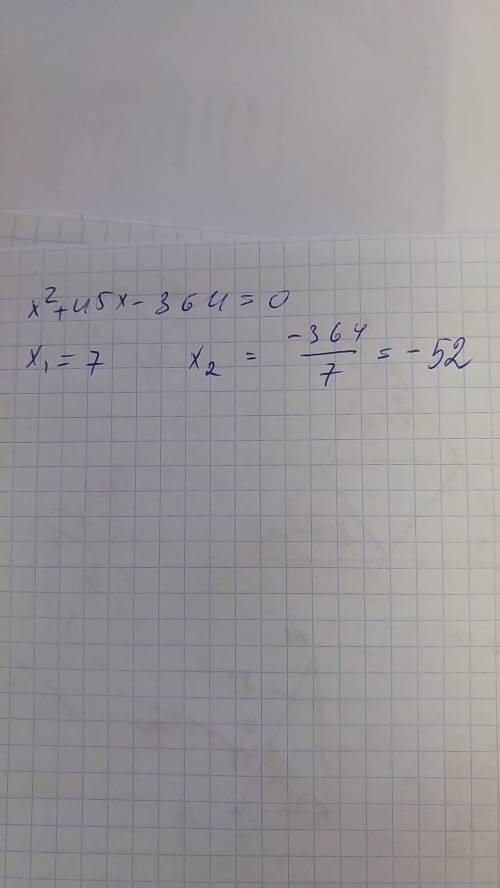 x²+45x-364=0
x₁=7 x₂ = -364/7 = -52